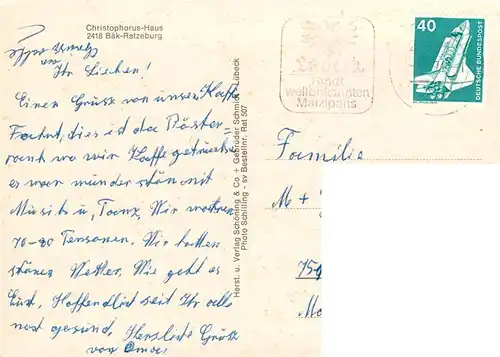 Christophorus-Haus
2418 Bäk-Ratzeburg
Ihr Lieben!
Einen Gruss von unser Kaffe
Fahrt, dies ist da
rant wo wir Kaffe getrunken
es war wunder schön mit
Musik u. Tanz, Wir waren
70-80 Personen. Wir hatten
schönes Wetter. Wie geht es
Euch, Hoffendlich seit Ihr alle
noch gesund. Herzliche Grüsse
von Omas
Herst. u. Verlag Schöning & Co + Gebrüder Schmidt, Lübeck
Photo Schilling - sv Bestellnr. Rat 507
Lübeck
Stadt
weltbekannten
Marzipans
40
DEUTSCHE BUNDESPOST
Familie
M +
759